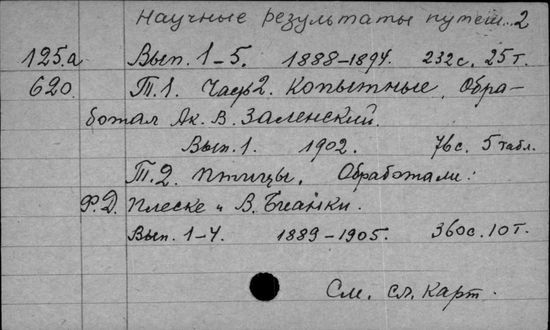 Научные результаты путеш... 2
125.a Вып. 1-5. 1888-1894. 232 с. 25 т.
620. Т. 1. Часть 2. Копытные. Обра-
ботал Ак. В. Заленский.
Вып. 1. 1902. 76 с. 5 табл.
Т. 2. Птицы. Обработали:
Ф. Д. Плеске и В. Бианки.
Вып. 1-4. 1889-1905. 360 с. 10 т.
См. сл. карт.